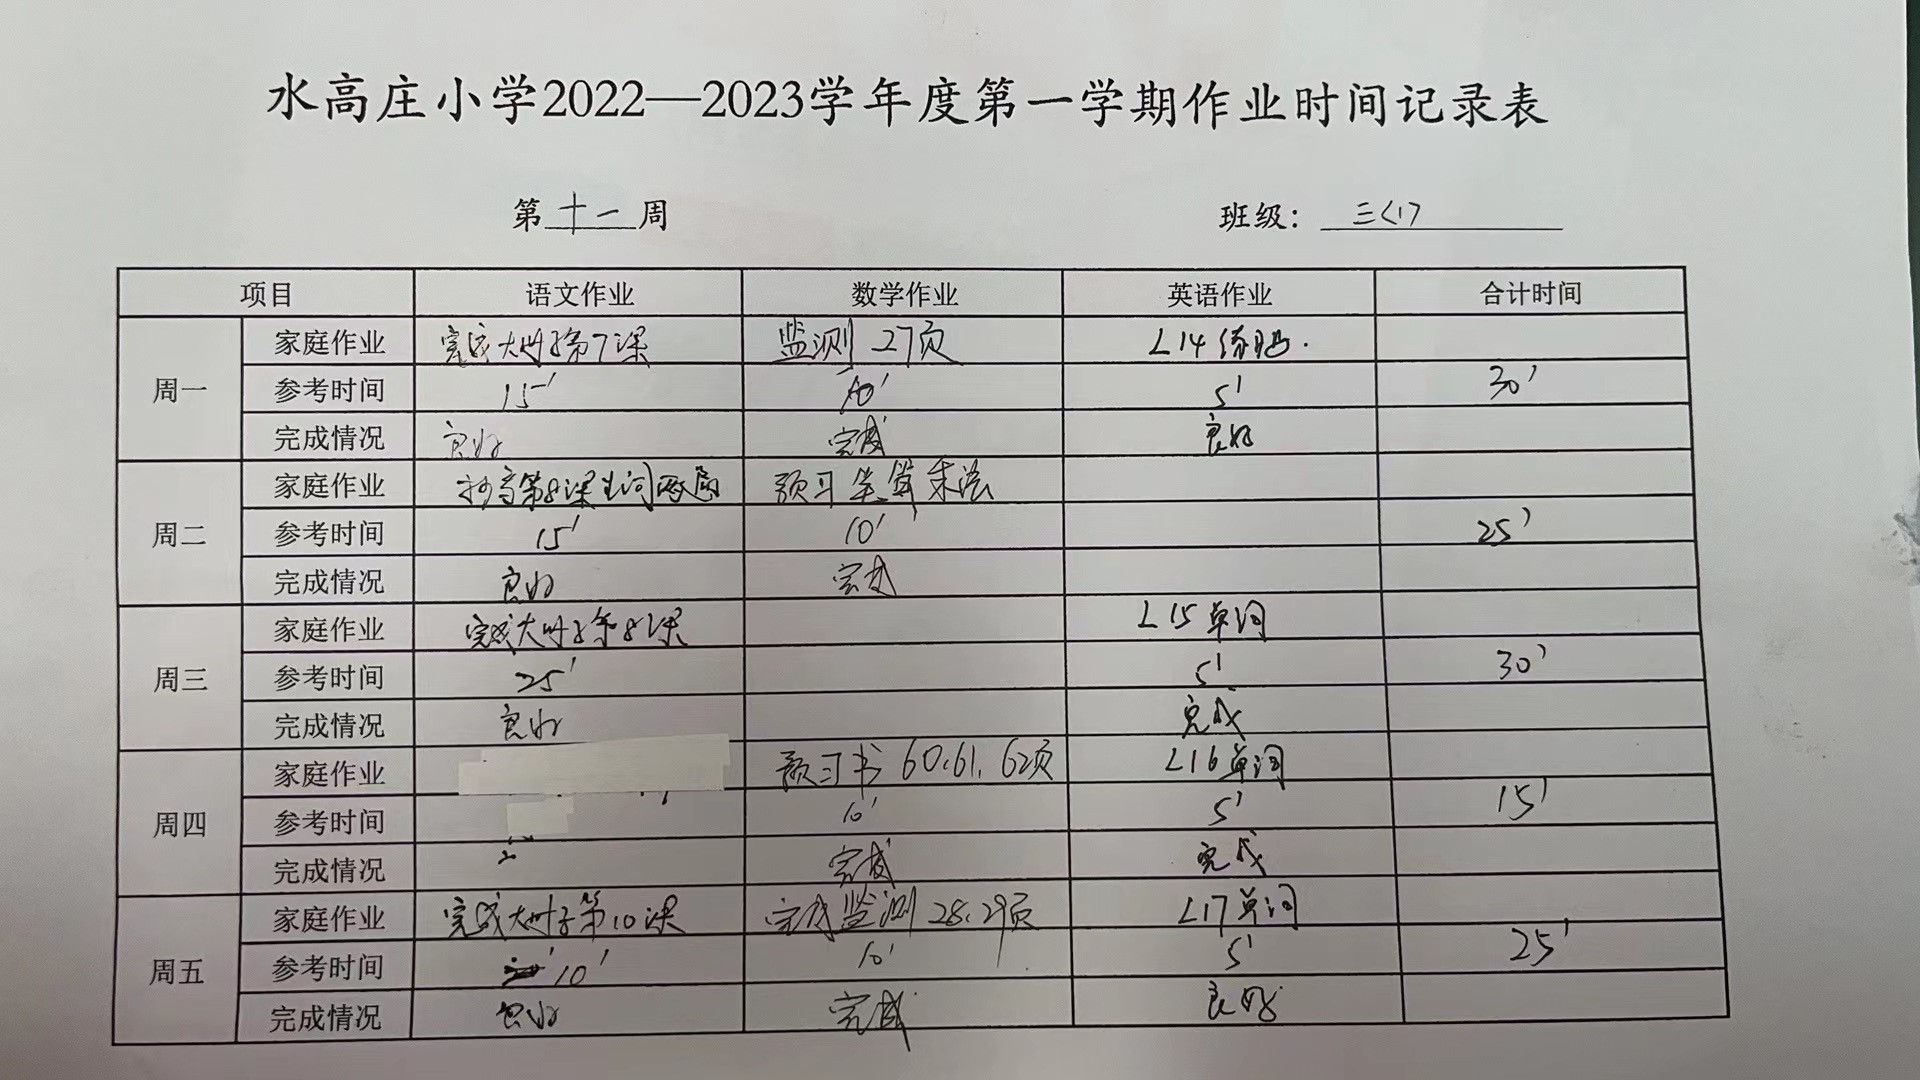 水高庄小学2022—2023学年度第一学期作业时间记录表
第十一周 班级：三<1>
项目 语文作业 数学作业 英语作业 合计时间
周一
家庭作业 完成大册子第7课 监测27页 L14练习.
参考时间 15′ 10′ 5′ 30′
完成情况 良好 完成 良好
周二
家庭作业 抄写第8课生词两遍 预习笔算乘法
参考时间 15′ 10′ 25′
完成情况 良好 完成
周三
家庭作业 完成大册子第8课 L15单词
参考时间 25′ 5′ 30′
完成情况 良好 完成
周四
家庭作业 预习书60.61.62页 L16单词
参考时间 10′ 5′ 15′
完成情况 完成 完成
周五
家庭作业 完成大册子第10课 完成监测28.29页 L17单词
参考时间 10′ 10′ 5′ 25′
完成情况 良好 完成 良好